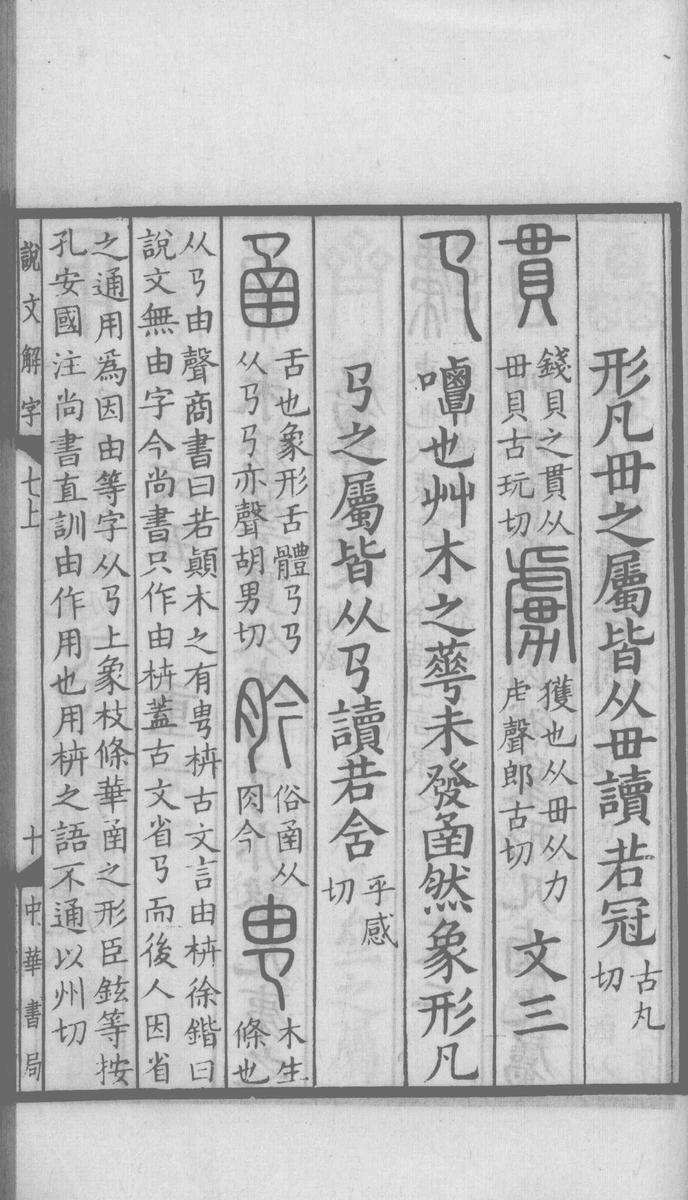 形凡毌之屬皆从毌讀若冠古丸切
貫錢貝之貫从毌貝古玩切虜獲也从毌从力虍聲郎古切文三
𢎘嘾也艸木之蓇未發圅然象形凡
𢎘之屬皆从𢎘讀若含乎感切
圅舌也象形舌體𢎘𢎘从𢎘𢎘亦聲胡男切肣俗圅从肉今甹木生條也
从𢎘由聲商書曰若顚木之有甹枿古文言由枿徐鍇曰
說文無由字今尚書只作由枿蓋古文省𢎘而後人因省
之通用爲因由等字从𢎘上象枝條華圅之形臣鉉等按
孔安國注尚書直訓由作用也用枿之語不通以州切
說文解字 七上 十 中華書局